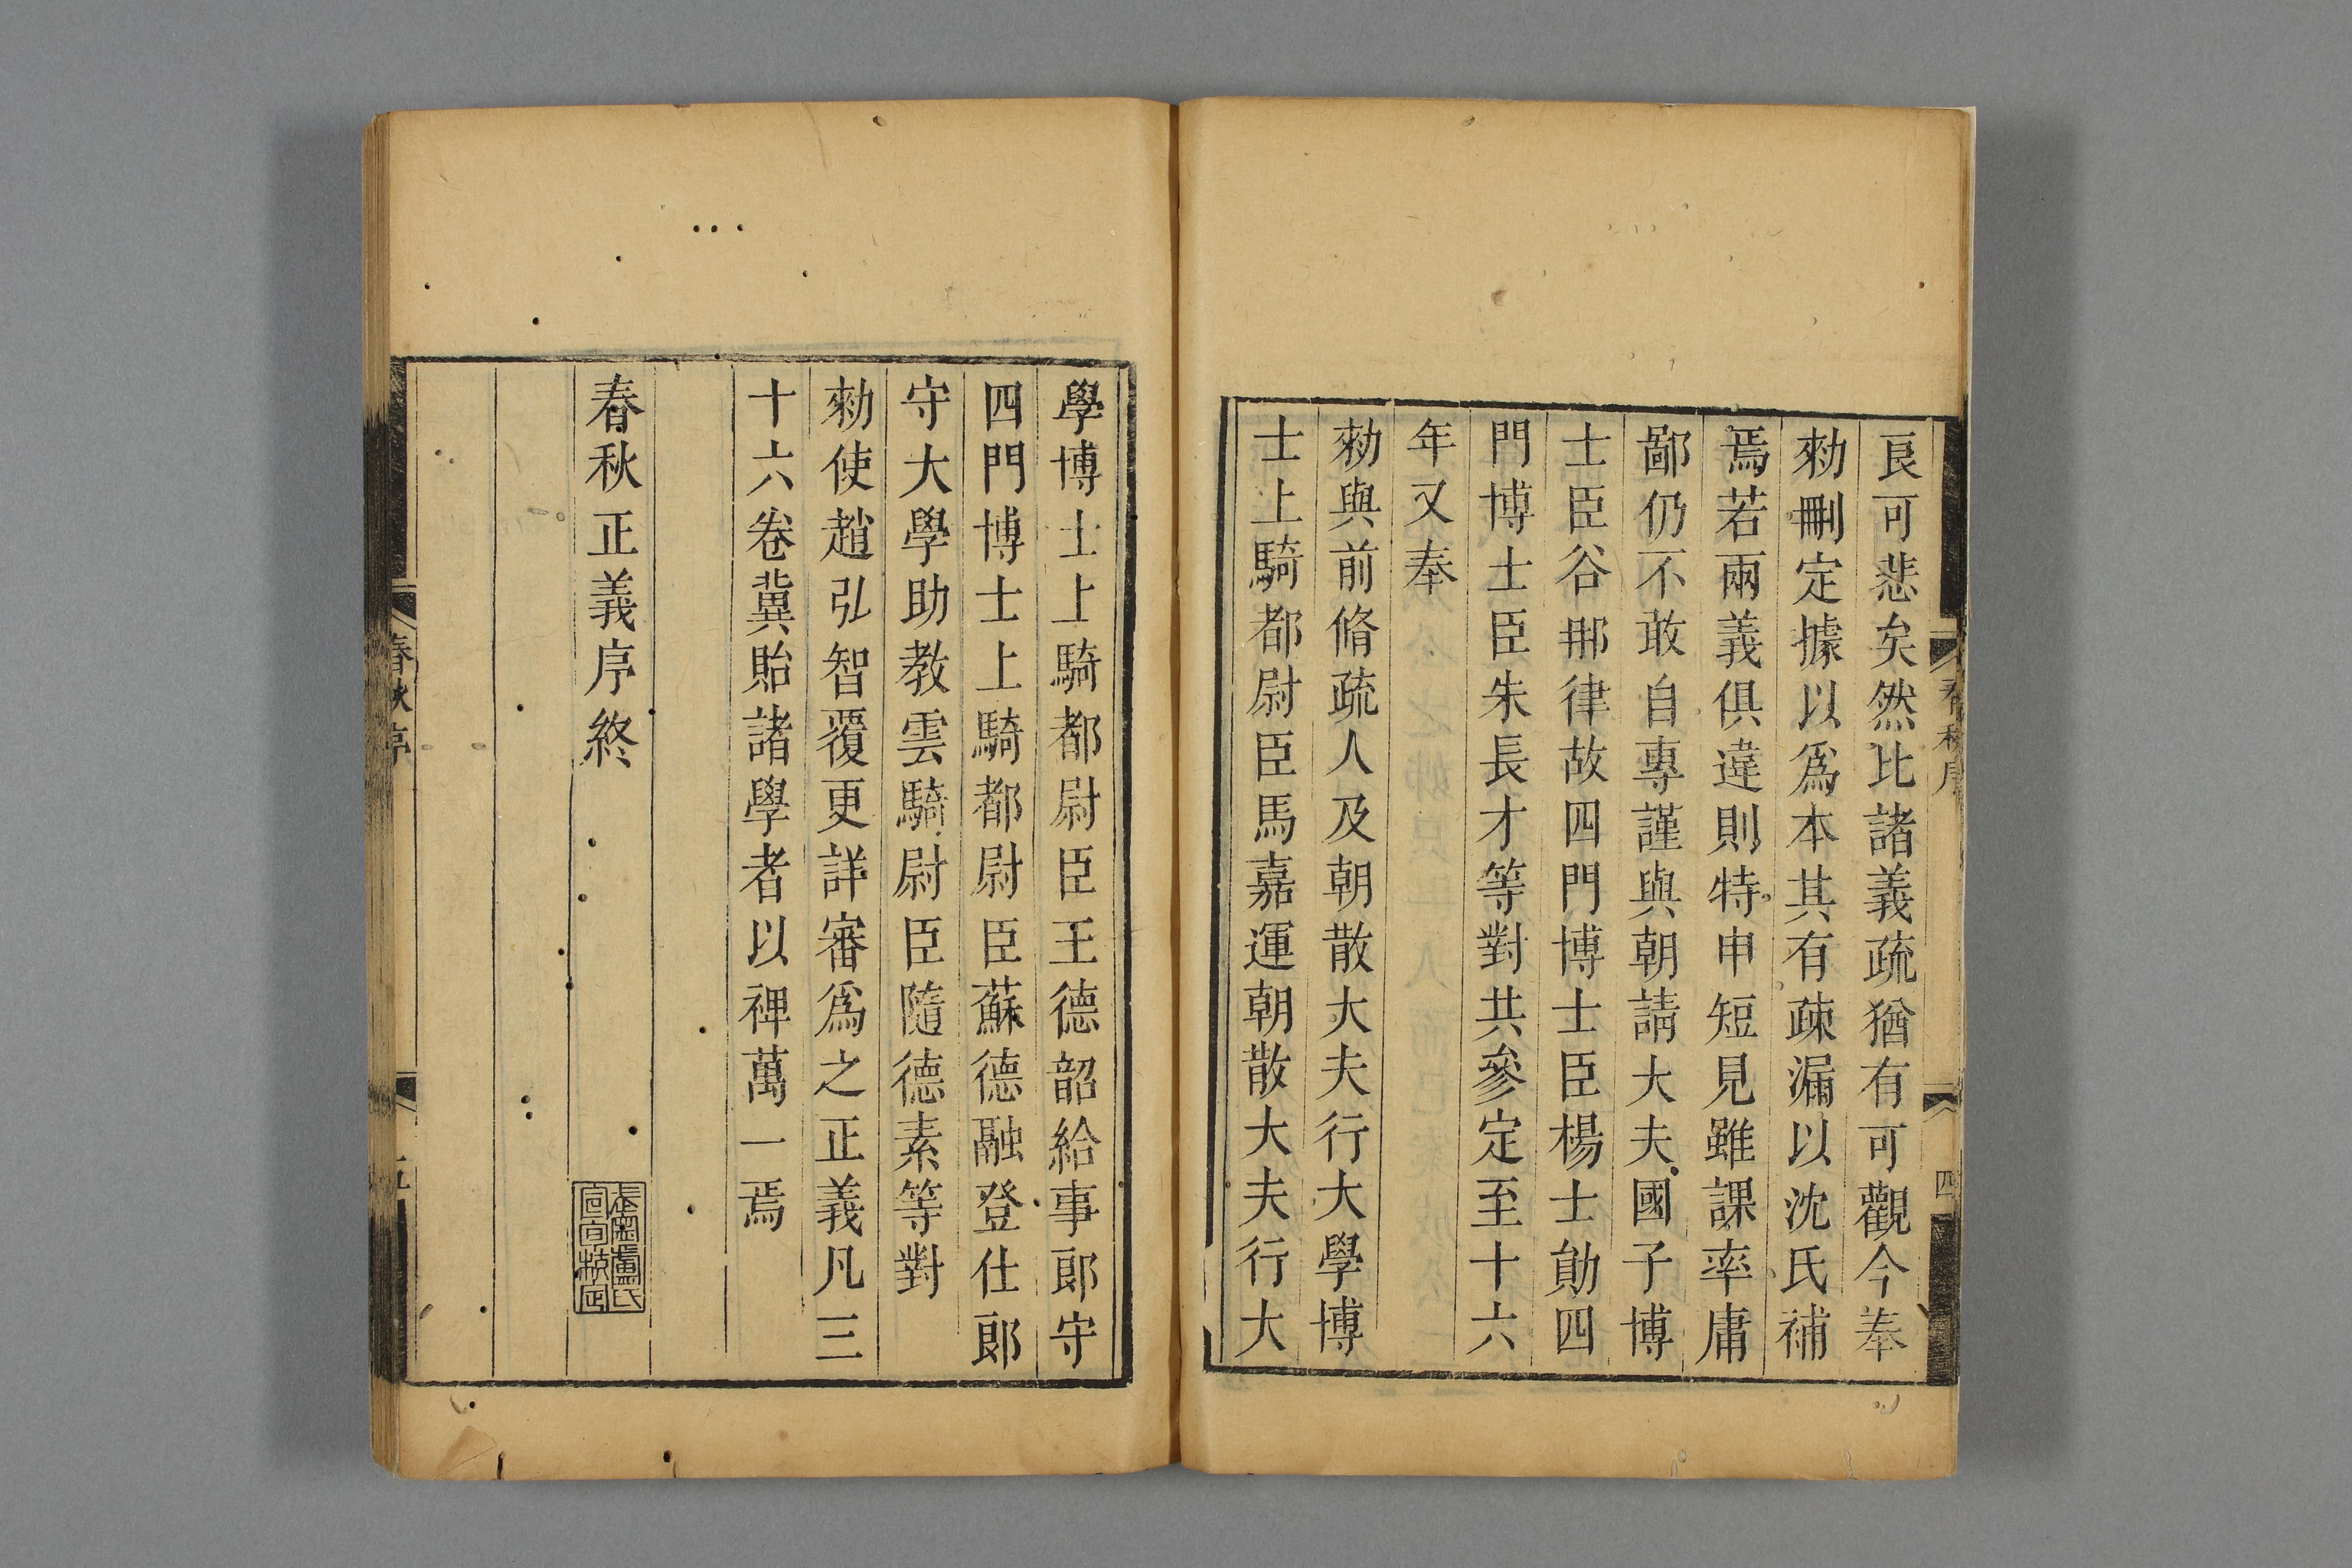 良可悲矣然比諸義疏猶有可觀今奉
勑刪定據以爲本其有疎漏以沈氏補
焉若兩義俱違則特申短見雖課率庸
鄙仍不敢自專謹與朝請大夫國子博
士臣谷𨙻律故四門博士臣楊士勛四
門博士臣朱長才等對共參定至十六
年又奉
勑與前脩疏人及朝散大夫行大學博
士上騎都尉臣馬嘉運朝散大夫行大
學博士上騎都尉臣王德韶給事郎守
四門博士上騎都尉臣蘇德融登仕郎
守大學助教雲騎尉臣隨德素等對
勑使趙弘智覆更詳審爲之正義凡三
十六卷冀貽諸學者以裨萬一焉
春秋正義序終
春秋序